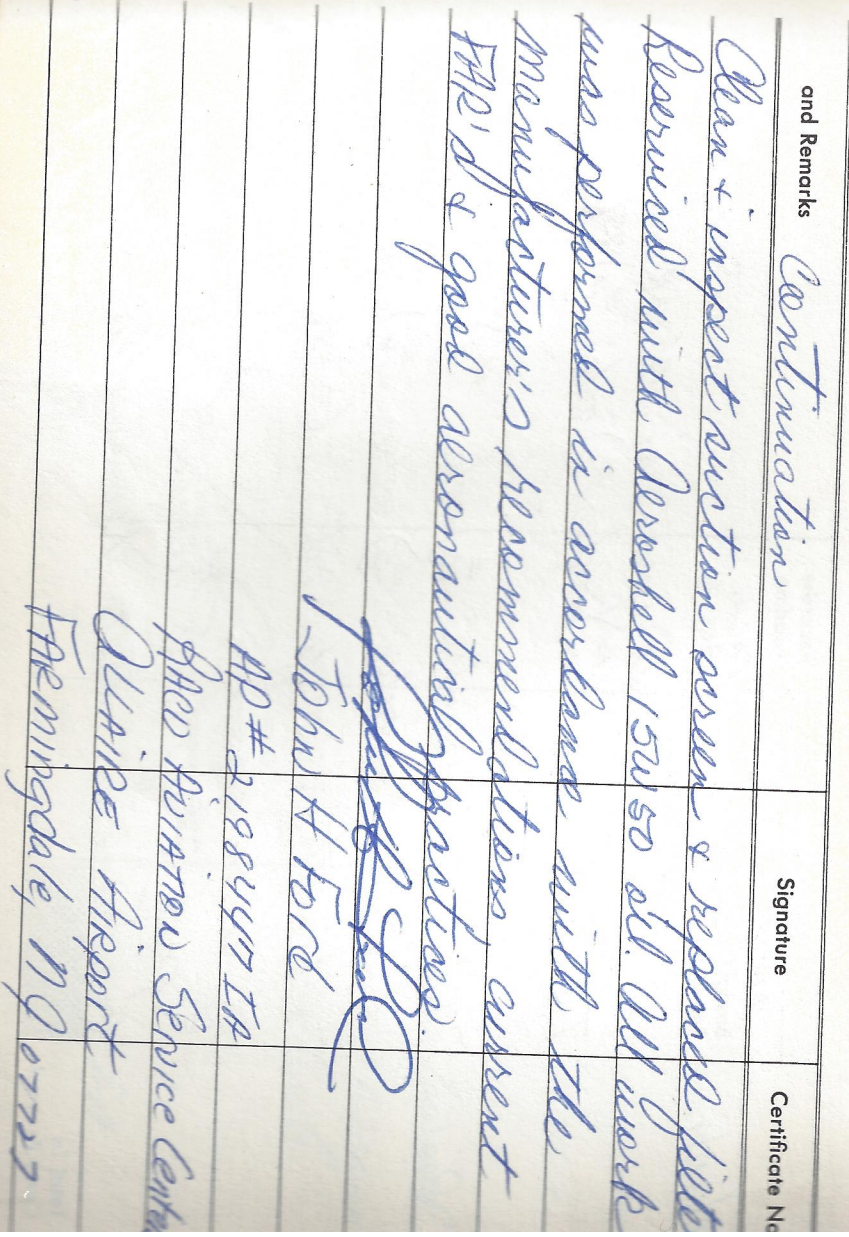 and Remarks Continuation Signature Certificate No
Clean & inspect suction screen & replaced filte
Reserviced with Aeroshell 15W50 oil. All work
was performed in accordance with the
manufacturer's recommendations, current
FAR'S & good aeronautical practices.
John H Ford
AP# 2198447 IA
AVIATION Service Center
AIRPORT
FARMINGdale, NJ 07727